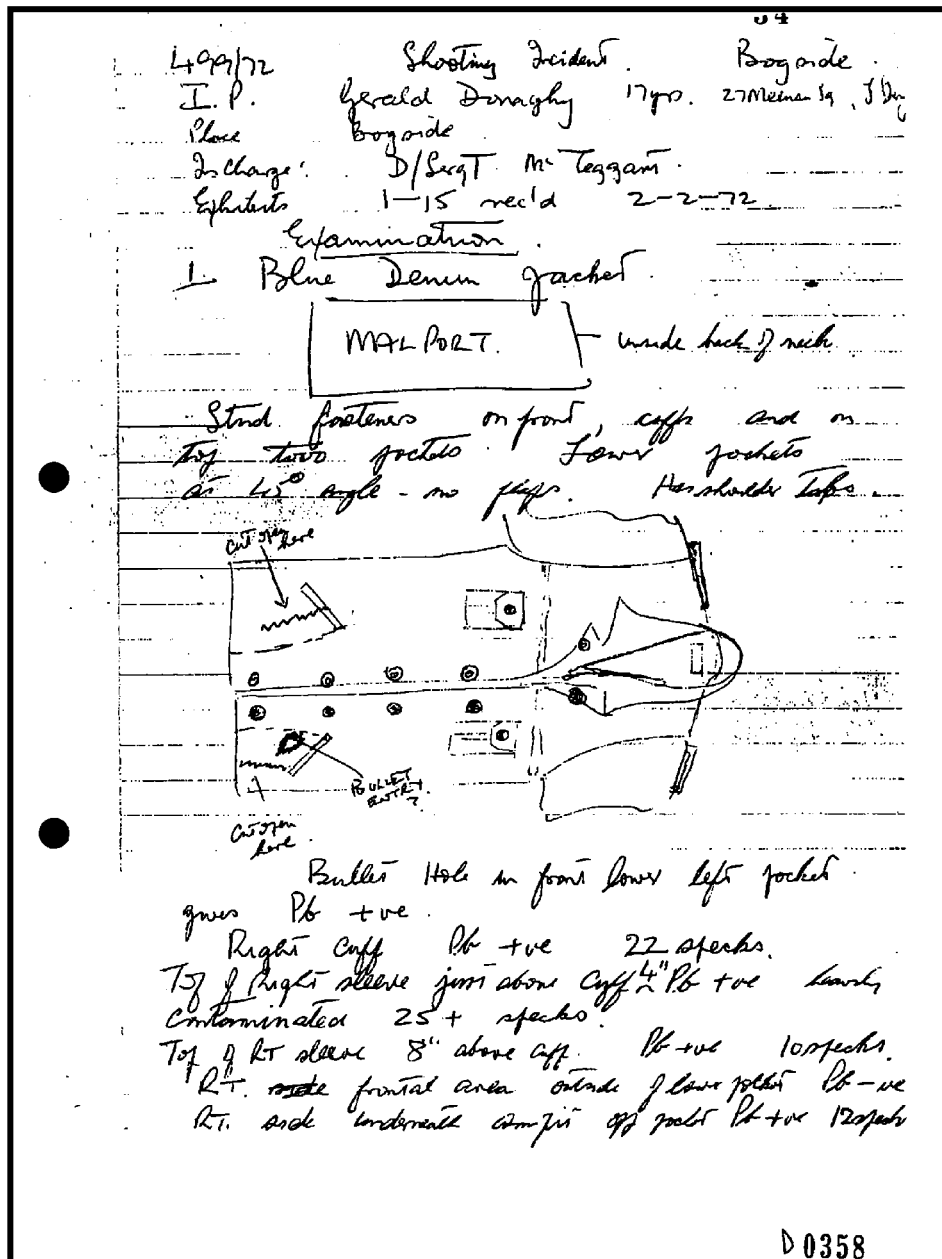 34
499/72 Shooting Incident. Bogside.
I.P. Gerald Donaghy 17yrs. 27 Meenan Sq, 
Place Bogside
In Charge: D/Sergt Mc Teggart.
Exhibits 1—15 rec'd 2-2-72.
Examination.
1 Blue Denim Jacket.
MALPORT. — inside back of neck
Stud fasteners on front, cuffs and on
top two pockets. Lower pockets
at 45° angle - no flaps. Has shoulder Tabs.
Cut open here
BULLET ENTRY?
Cut open here.
Bullet Hole in front lower left pocket
gives Pb +ve.
Right Cuff Pb +ve 22 specks.
Top of Right sleeve just above Cuff 4" Pb +ve heavily
contaminated 25+ specks.
Top of RT sleeve 8" above cuff. Pb +ve 10 specks.
RT. frontal area outside of lower pocket Pb -ve
RT. side underneath armpit pocket Pb +ve 12 specks
D 0358